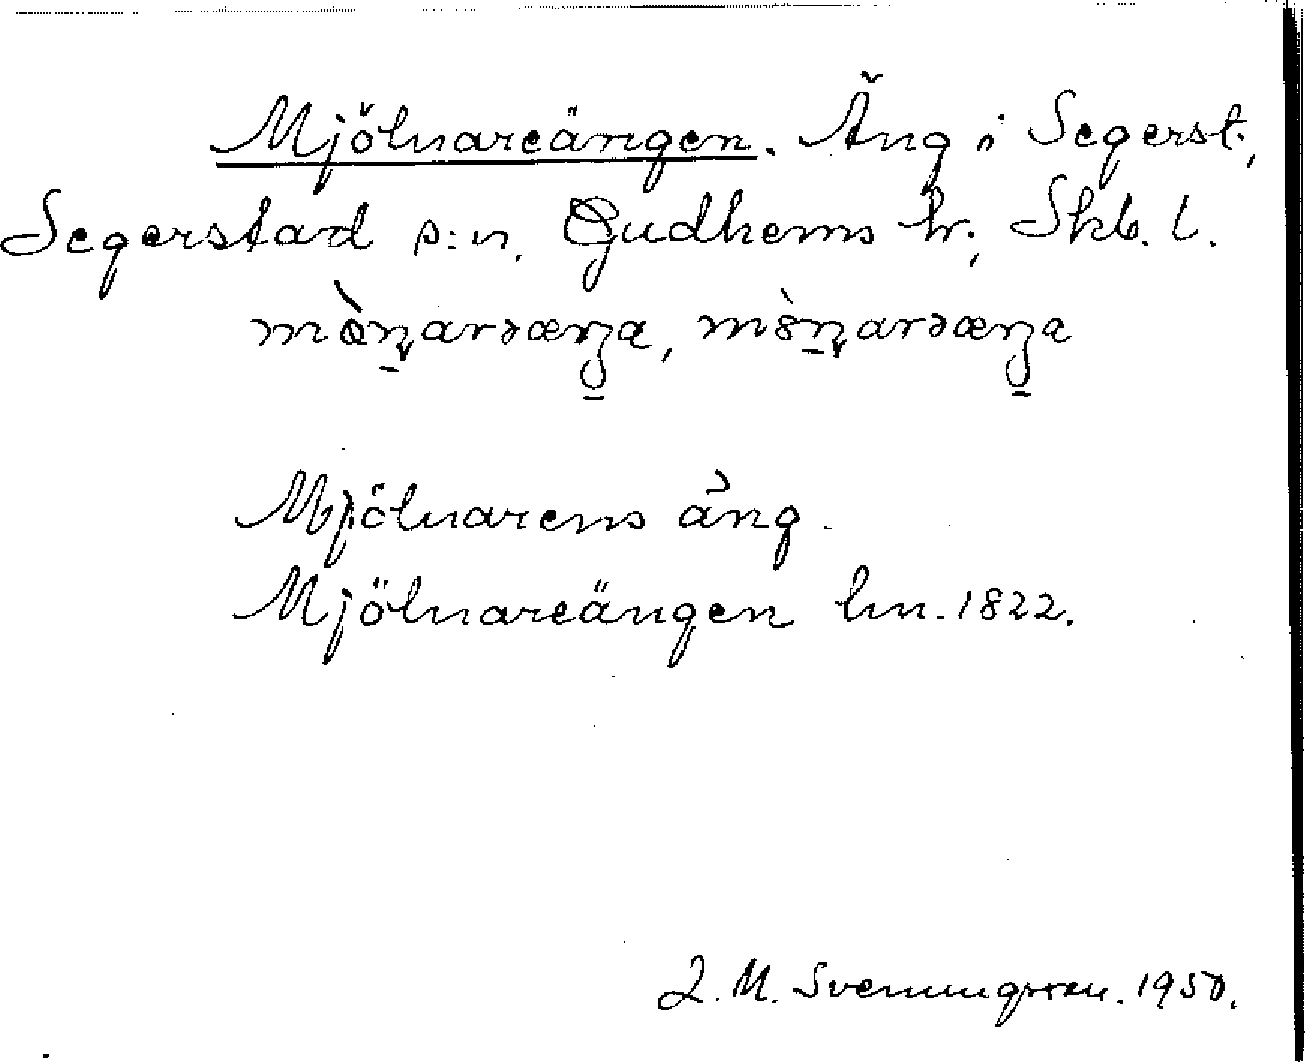 Mjölnareängen. Äng i Segerst.,
Segerstad s:n, Gudhems hr, Skb. l.
Mjölnarens äng.
Mjölnareängen hn. 1822.
J. M. Svenningsson. 1950.